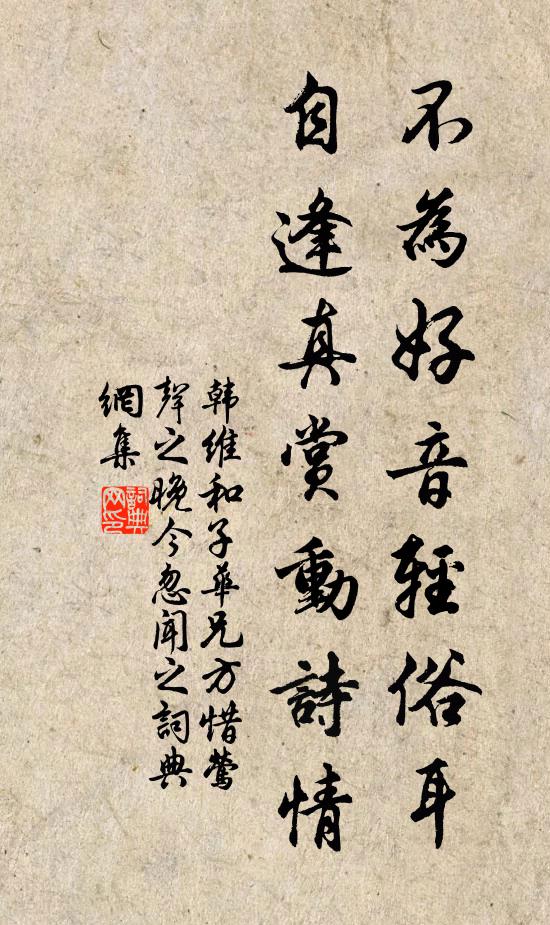 不為好音輕俗耳
自逢真賞動詩情
韩維和子華兄方惜鶯
聲之晚今忽聞之詞典
網集
詞典
网印